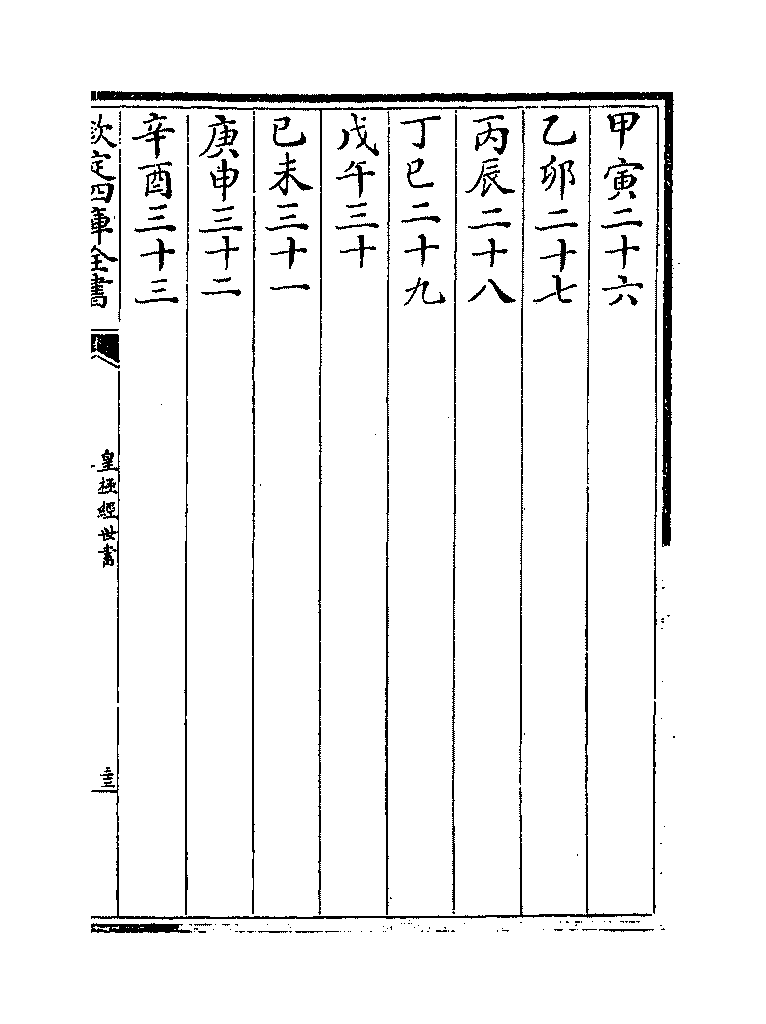 甲寅二十六
乙卯二十七
丙辰二十八
丁巳二十九
戊午三十
已未三十一
庚申三十二
辛酉三十三
欽定四庫全書
皇極經世書